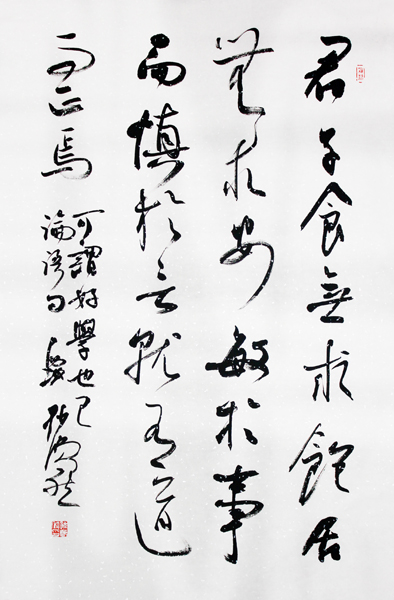 君子食無求飽居
無求安敏於事
而慎於言就有道
而正焉
可謂好學也已
論語句